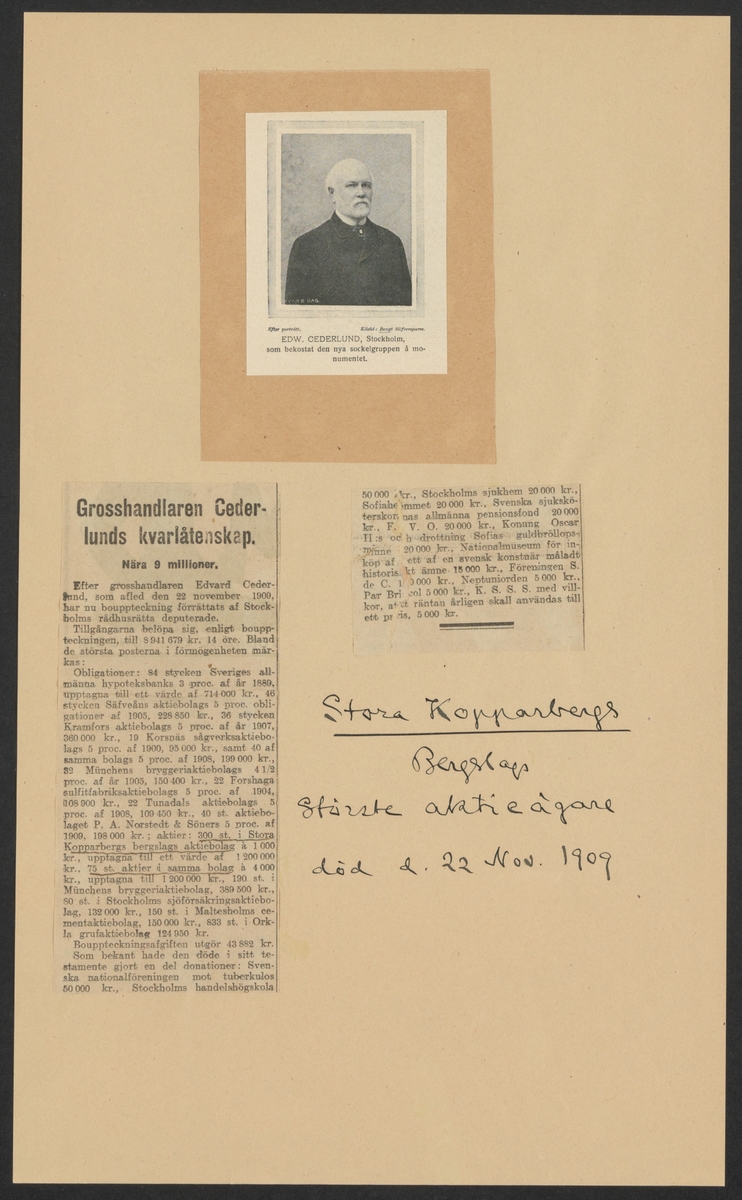 Efter porträtt.
Kliché: Bengt Silfversparre.
EDW. CEDERLUND, Stockholm,
som bekostat den nya sockelgruppen å mo-
numentet.
Grosshandlaren Ceder-
lunds kvarlåtenskap.
Nära 9 millioner.
Efter grosshandlaren Edvard Ceder-
lund, som afled den 22 november 1909,
har nu bouppteckning förrättats af Stock-
holms rådhusrätts deputerade.
Tillgångarna belöpa sig, enligt boupp-
teckningen, till 8 941 679 kr. 14 öre. Bland
de största posterna i förmögenheten mär-
kas:
Obligationer: 84 stycken Sveriges all-
männa hypoteksbanks 3 proc. af år 1889,
upptagna till ett värde af 714 000 kr., 46
stycken Säfveåns aktiebolags 5 proc. obli-
gationer af 1905, 228 850 kr., 36 stycken
Kramfors aktiebolags 5 proc. af år 1907,
360 000 kr., 19 Korsnäs sågverksaktiebo-
lags 5 proc. af 1900, 95 000 kr., samt 40 af
samma bolags 5 proc. af 1908, 199 000 kr.,
32 Münchens bryggeriaktiebolags 4 1/2
proc. af år 1905, 150 400 kr., 22 Forshaga
sulfitfabriksaktiebolags 5 proc. af 1904,
108 900 kr., 22 Tunadals aktiebolags 5
proc. af 1908, 109 450 kr., 40 st. aktiebo-
laget P. A. Norstedt & Söners 5 proc. af
1909, 198 000 kr.; aktier: 300 st. i Stora
Kopparbergs bergslags aktiebolag à 1 000
kr., upptagna till ett värde af 1 200 000
kr., 75 st. aktier i samma bolag à 4 000
kr., upptagna till 1 200 000 kr., 190 st. i
Münchens bryggeriaktiebolag, 389 500 kr.,
80 st. i Stockholms sjöförsäkringsaktiebo-
lag, 132 000 kr., 150 st. i Maltesholms ce-
mentaktiebolag, 150 000 kr., 833 st. i Ork-
la grufaktiebolag 124 950 kr.
Bouppteckningsafgiften utgör 43 882 kr.
Som bekant hade den döde i sitt te-
stamente gjort en del donationer: Sven-
ska nationalföreningen mot tuberkulos
50 000 kr., Stockholms handelshögskola
50 000 kr., Stockholms sjukhem 20 000 kr.,
Sofiahemmet 20 000 kr., Svenska sjukskö-
terskornas allmänna pensionsfond 20 000
kr., F. V. O. 20 000 kr., Konung Oscar
II:s och drottning Sofias guldbröllops-
minne 20 000 kr., Nationalmuseum för in-
köp af ett af en svensk konstnär måladt
historiskt ämne 15 000 kr., Föreningen S.
de C. 1 000 kr., Neptuniorden 5 000 kr.,
Par Bricol 5 000 kr., K. S. S. S. med vill-
kor, att räntan årligen skall användas till
ett pris, 5 000 kr.
Stora Kopparbergs
Bergslags
Störste aktieägare
död d. 22 Nov. 1909